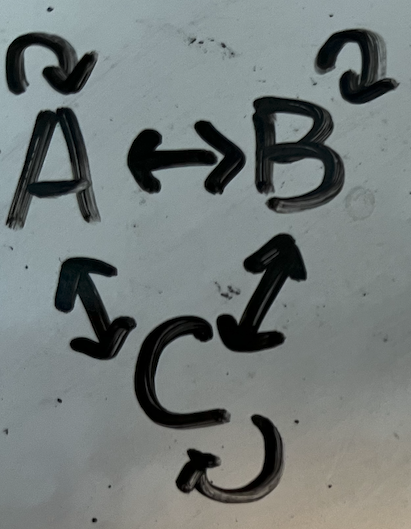 A ↔ B
C